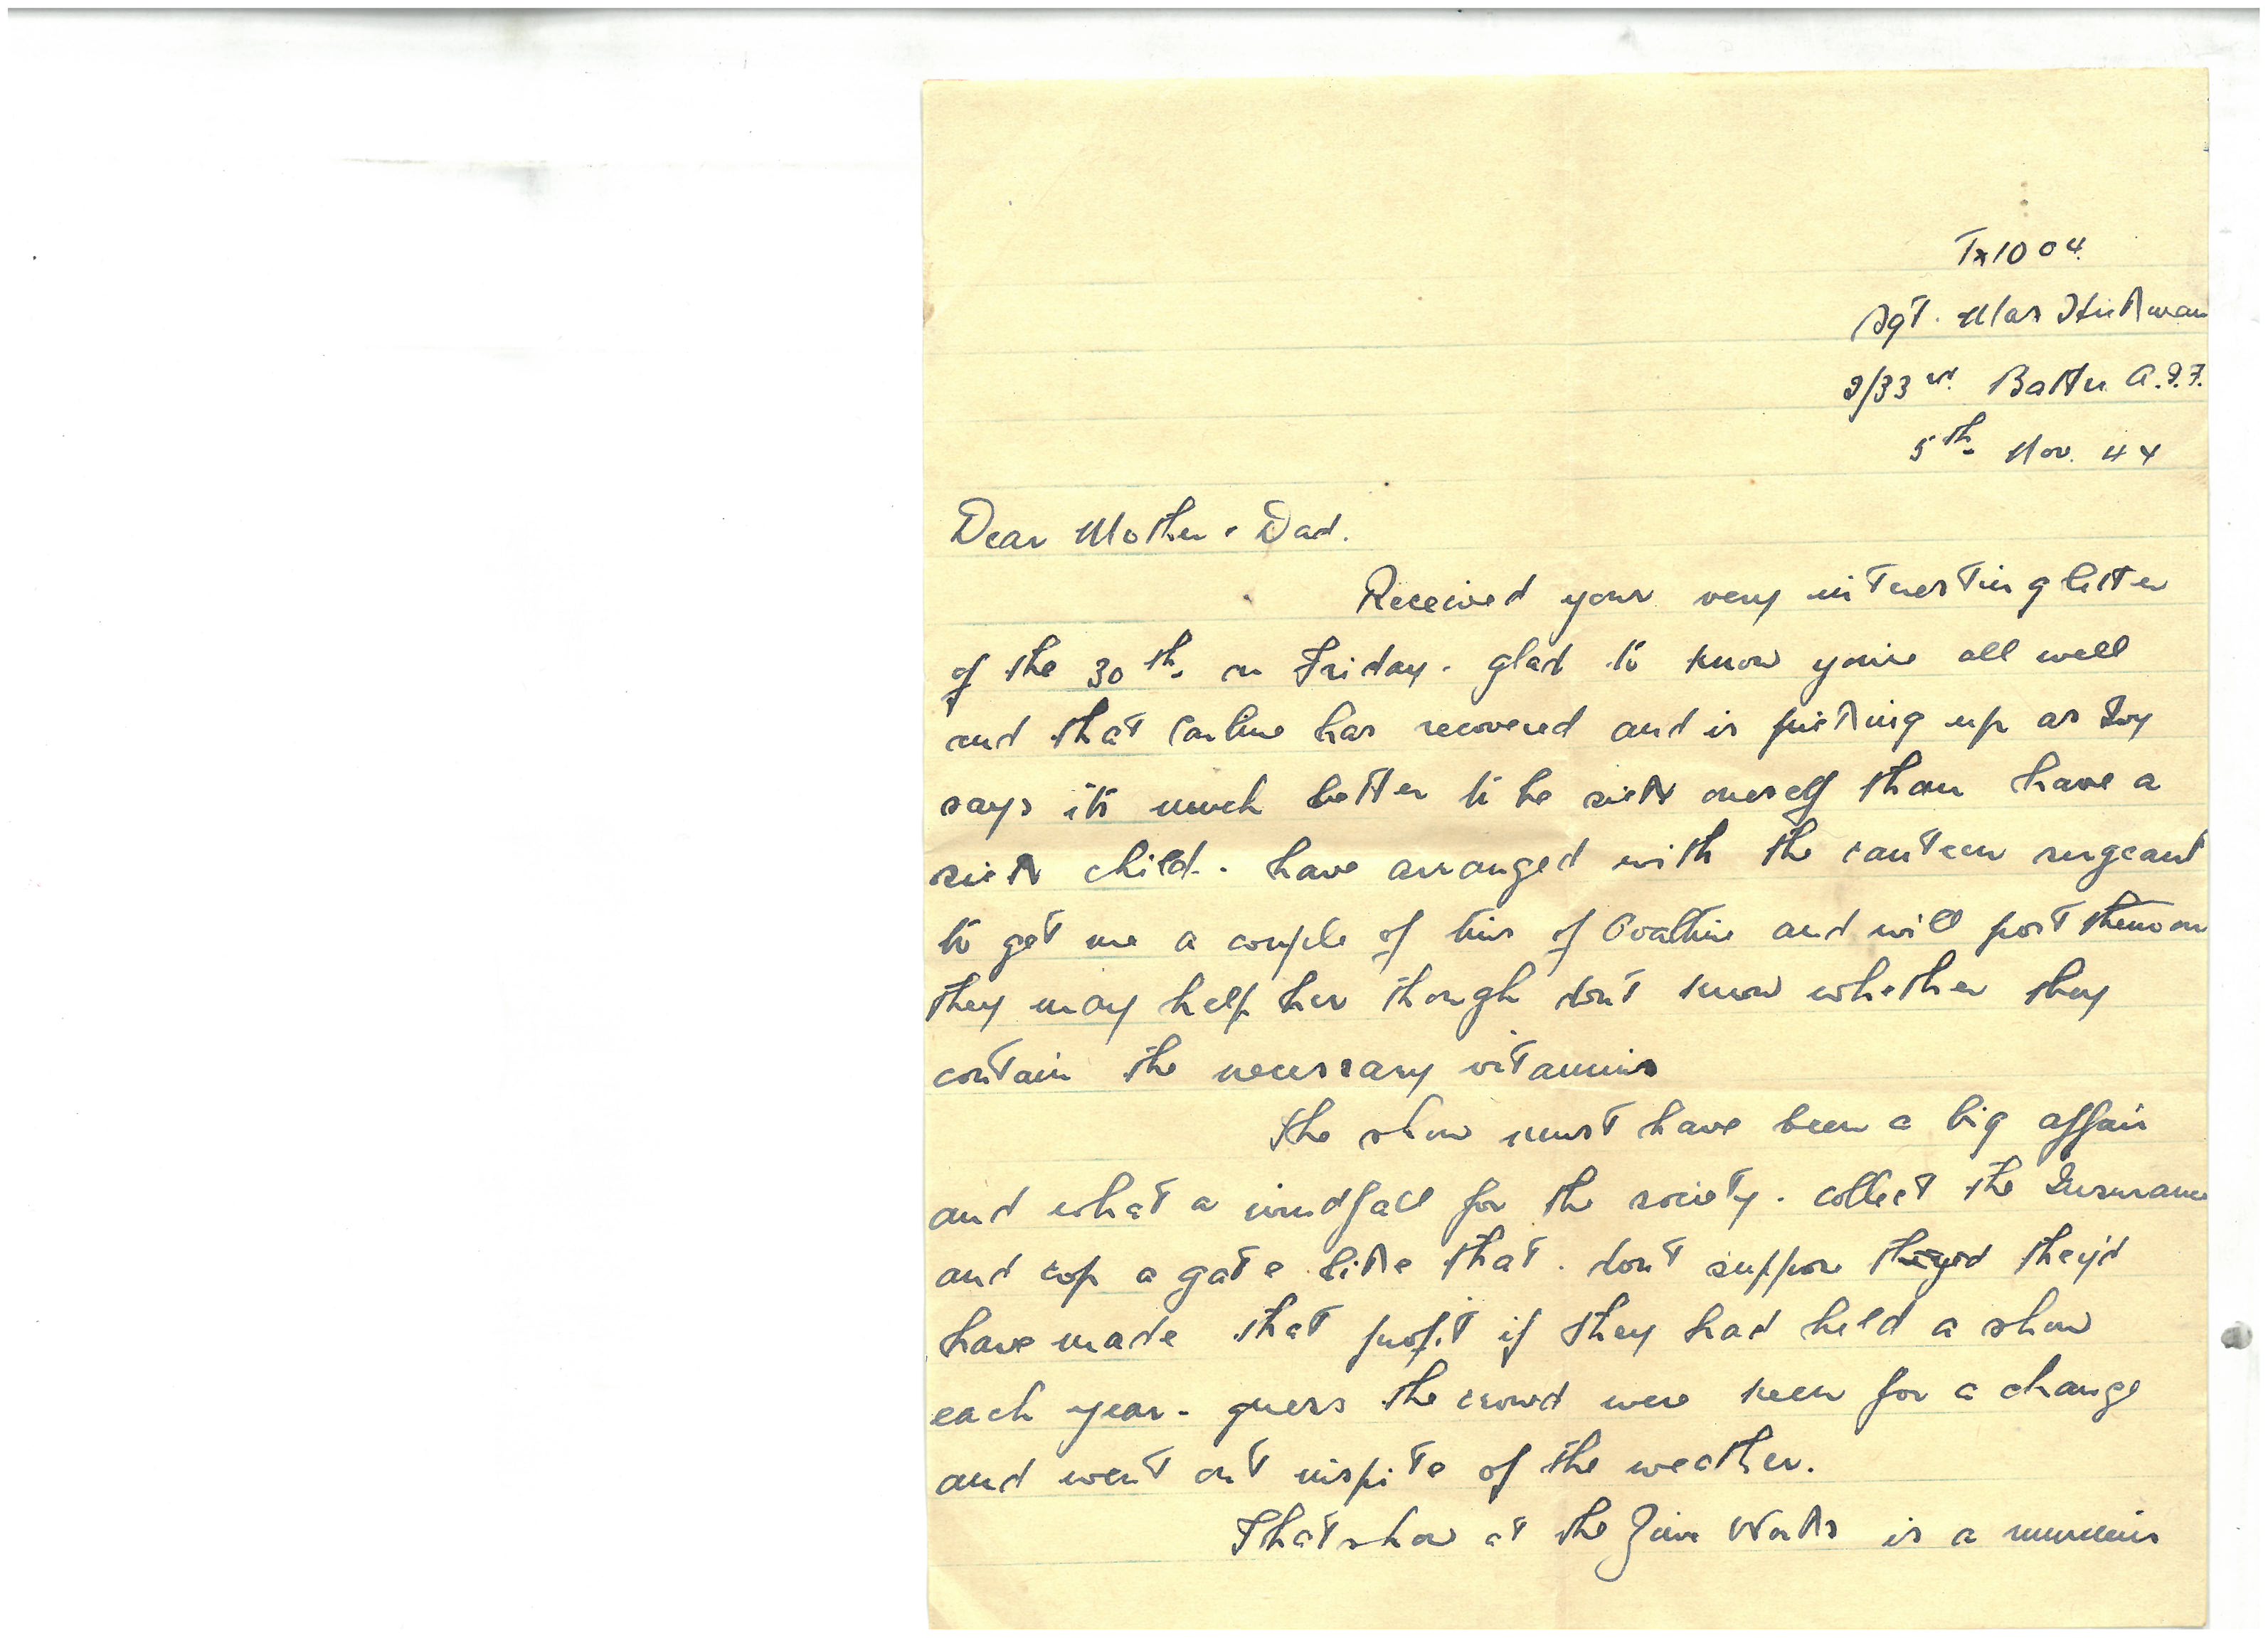 Tx1004
Sgt. Max Hickman
2/33rd Battn A.I.F.
5th Nov. 44
Dear Mother & Dad.
Received your very interesting letter
of the 30th on Friday. glad to know you're all well
and that has recovered and is picking up as Ivy
says its much better to be sick oneself than have a
sick child. have arranged with the canteen sergeant
to get me a couple of tins of Ovaltine and will post them on
they may help her though dont know whether they
contain the necessary vitamins
The show must have been a big affair
and what a windfall for the society. collect the Insurance
and cop a gate like that. dont suppose theyed they'd
have made that profit if they had held a show
each year. guess the crowd were keen for a change
and went out inspite of the weather.
That show at the Zinc Works is a